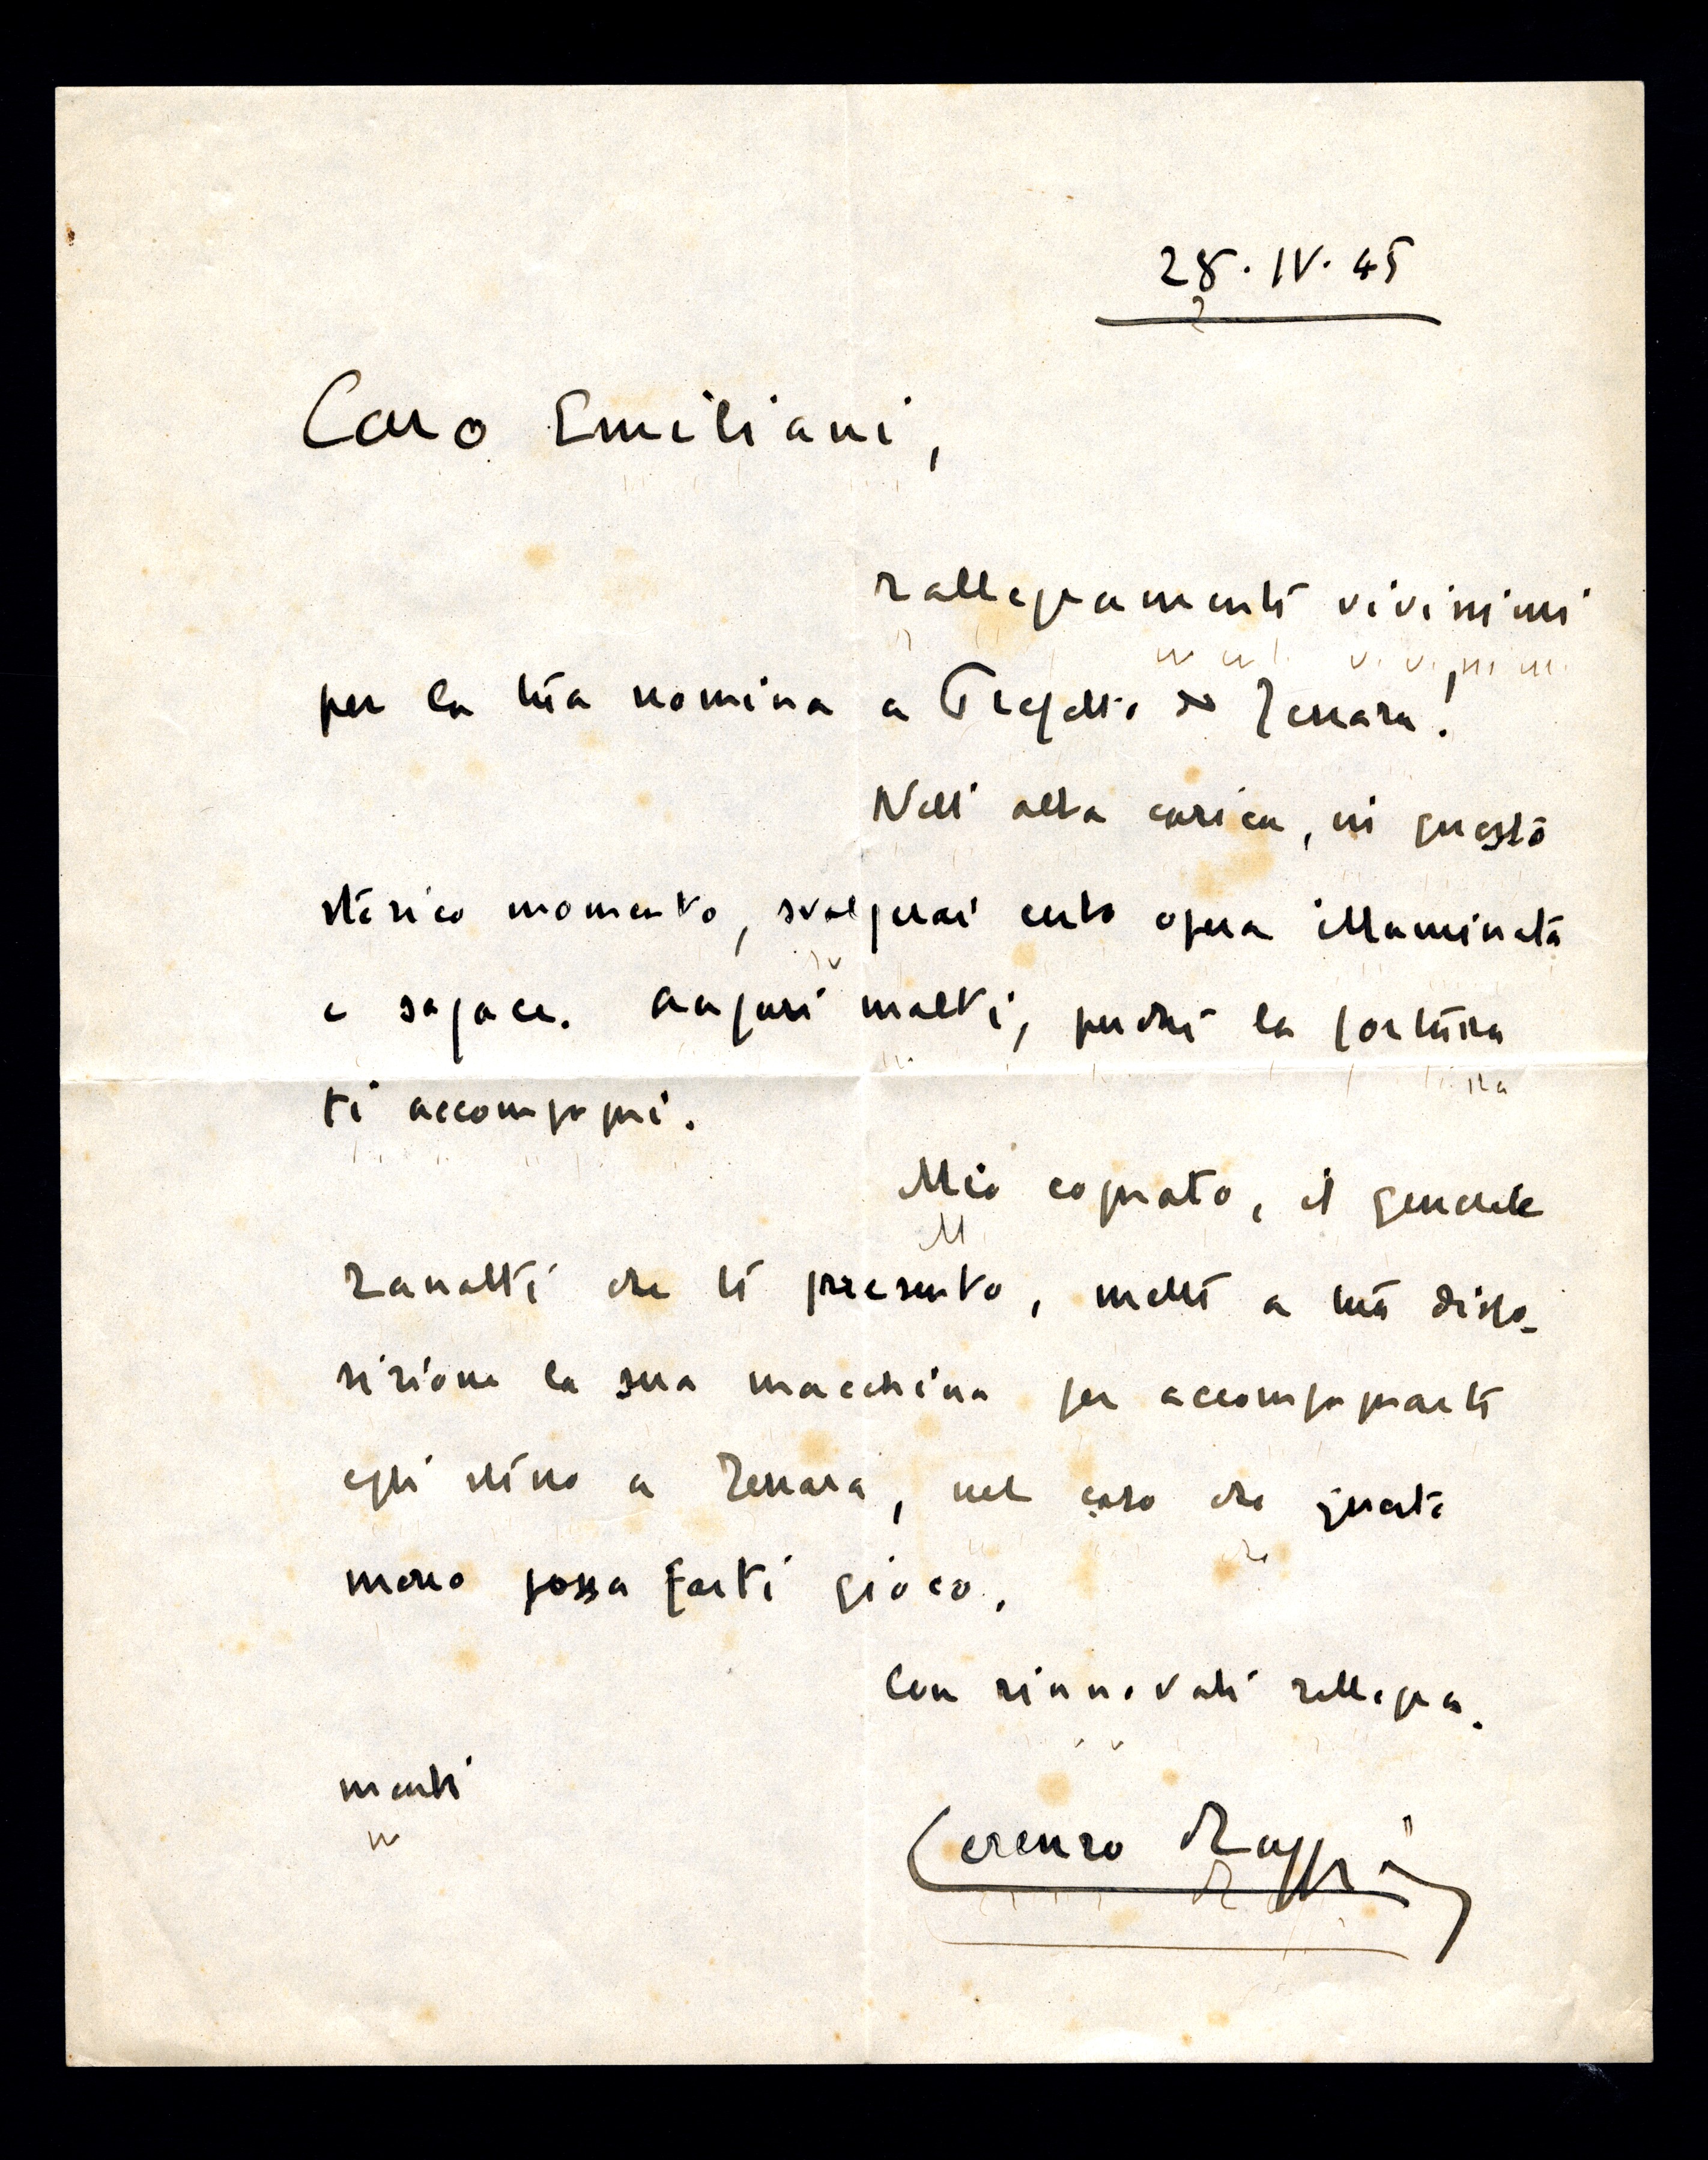 28. IV. 45
Caro Emiliani,
rallegramenti vivissimi
per la tua nomina a Prefetto di Ferrara!
Nell'alta carica, in questo
storico momento, svolgerai certo opera illuminata
e sagace. Auguri molti, perchè la fortuna
ti accompagni.
Mio cognato, il generale
Zanotti che ti presento, mette a tua dispo-
sizione la sua macchina per accompagnarti
egli stesso a Ferrara, nel caso che questo
mezzo possa farti gioco.
Con rinnovati rallegra-
menti
Lorenzo Ruggi